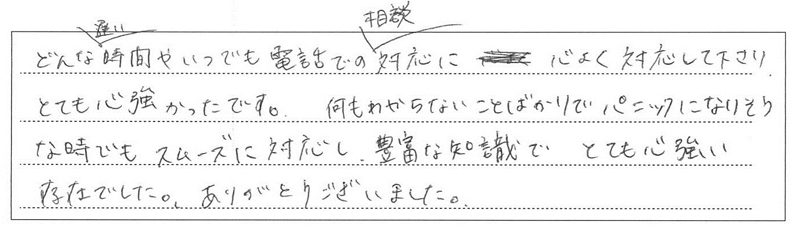 遅い 相談
どんな時間やいつでも電話での対応に 心よく対応して下さり
とても心強かったです。 何もわからないことばかりでパニックになりそう
な時でもスムーズに対応し、豊富な知識で とても心強い
存在でした。ありがとうございました。